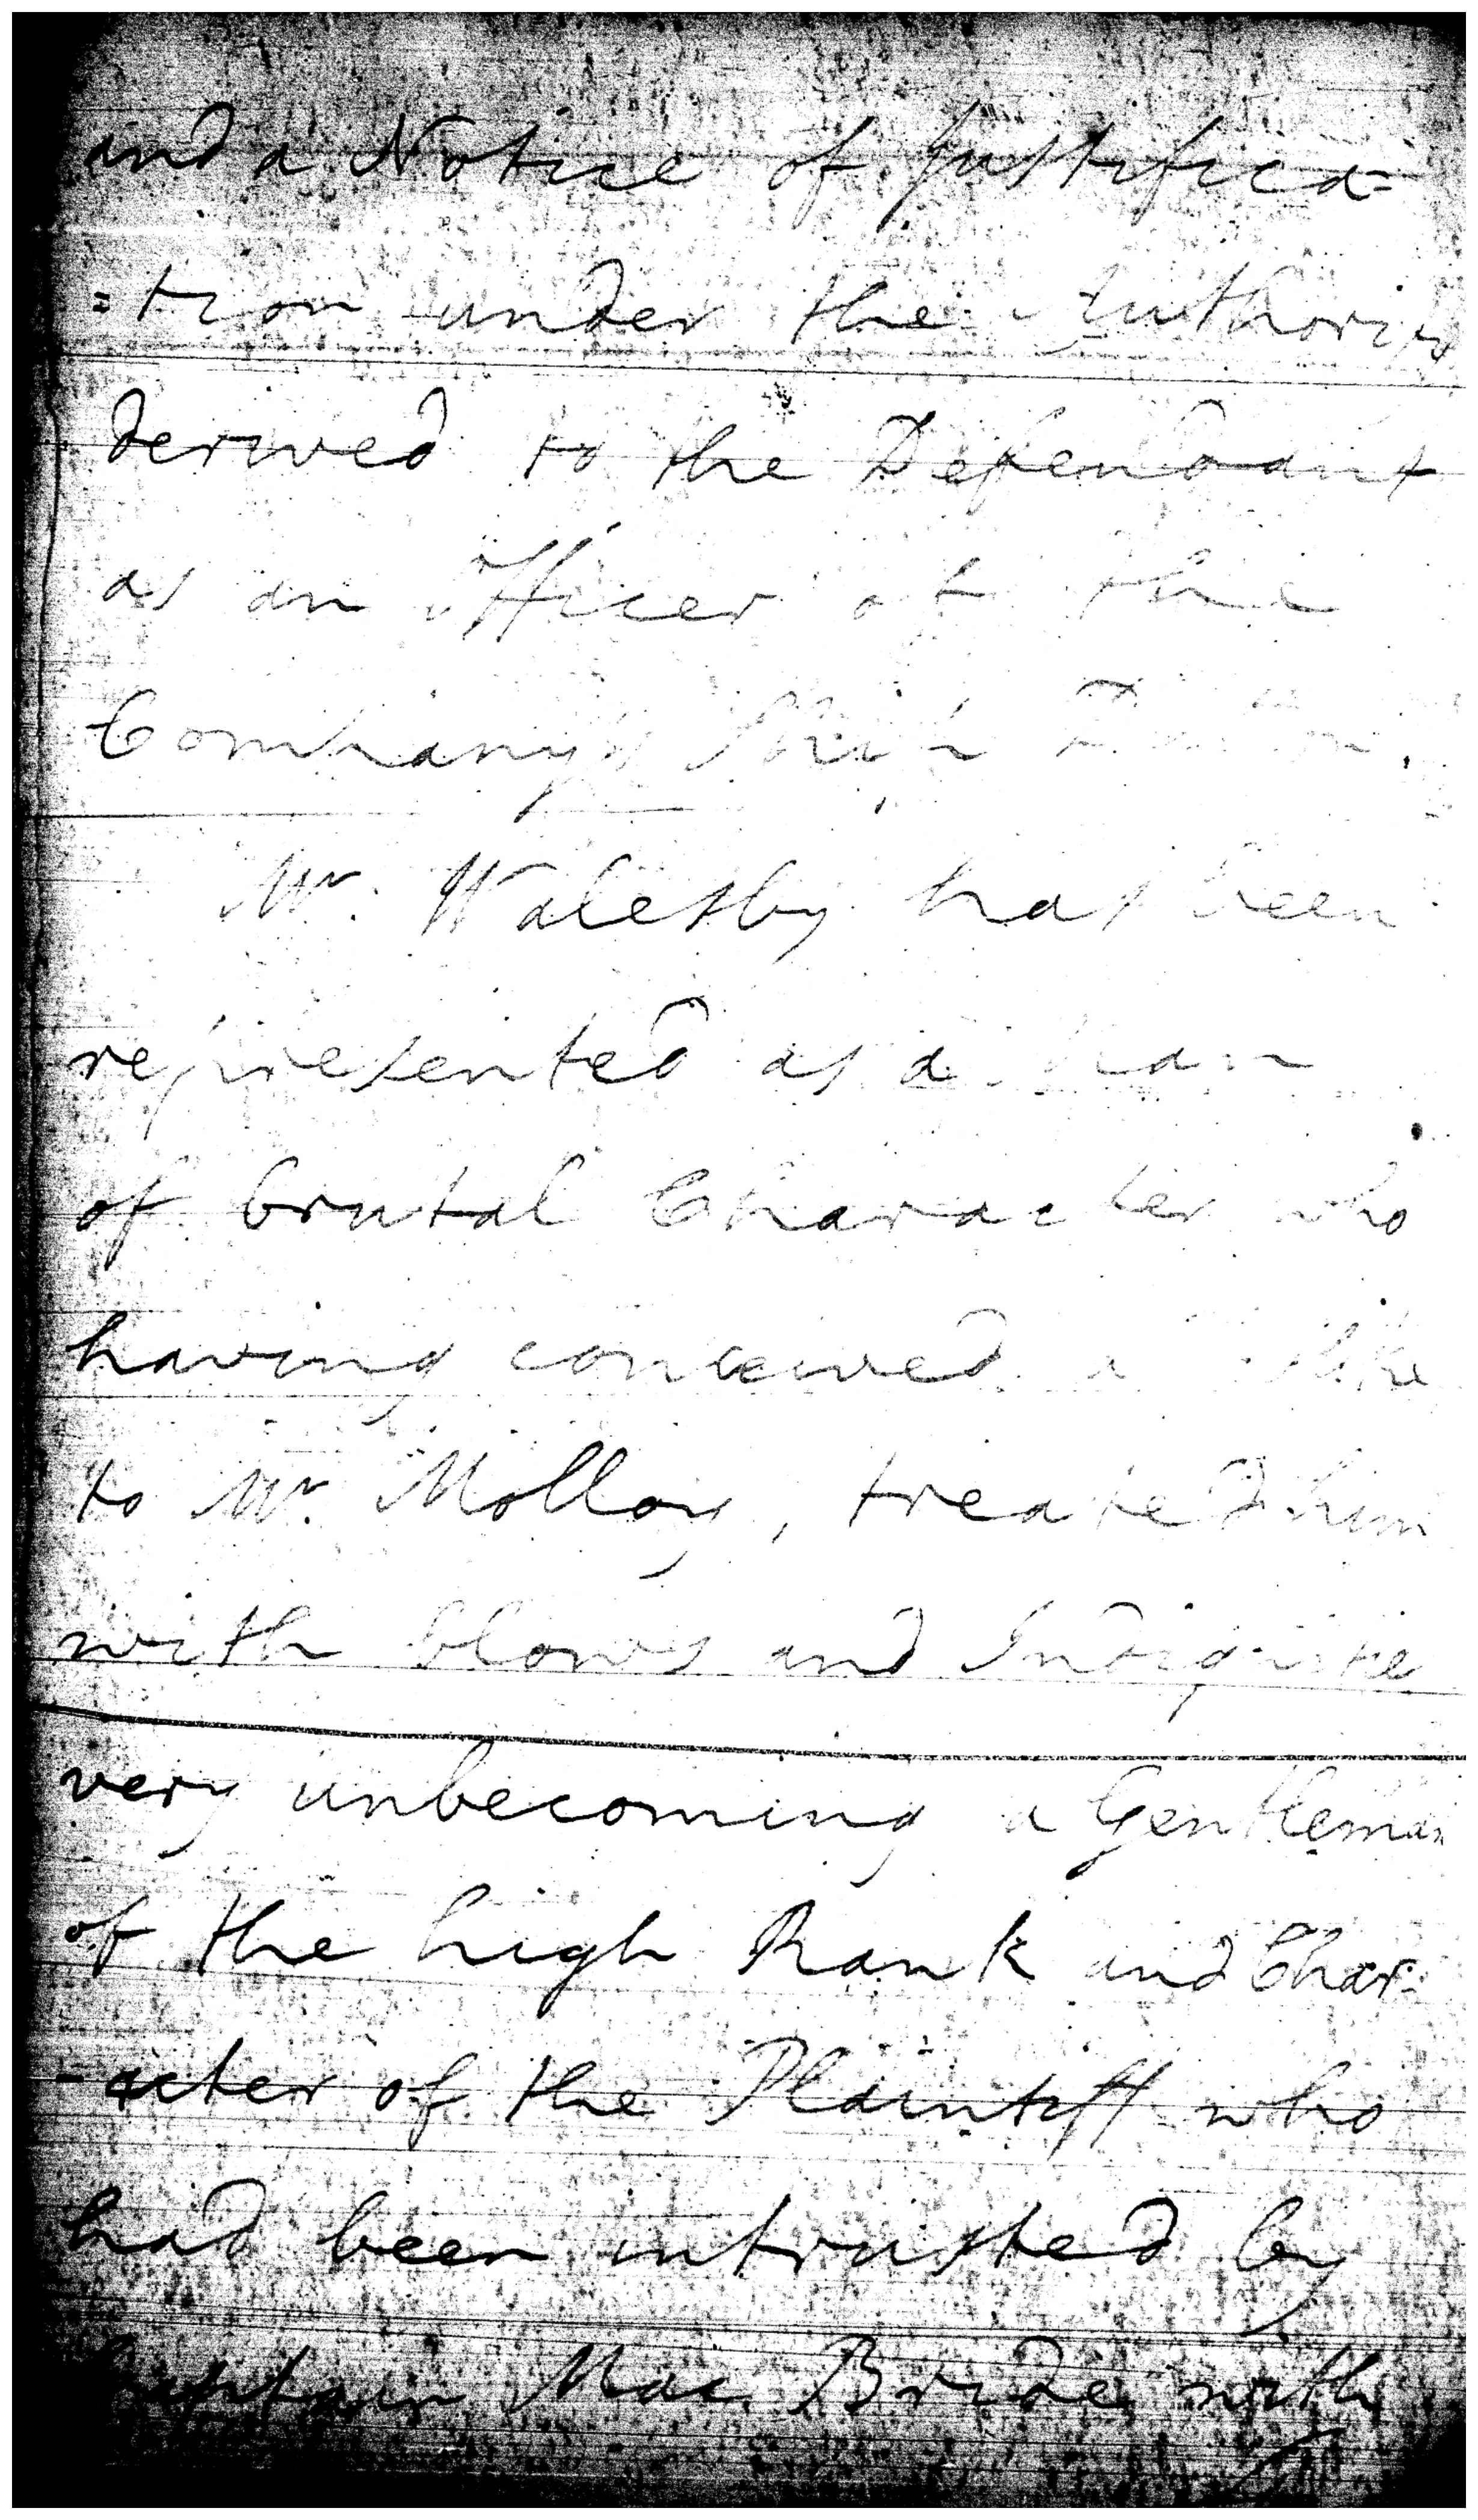 and a Notice of Justifica=
=tion under the Authority
derived to the Defendant
as an officer of the
Company's Ship
Mr. Walesby has been
represented as a man
of brutal Character who
having conceived a
to Mr. Molloy, treated him
with blows and Indignitie
very unbecoming a Gentleman
of the high Rank and Char=
-acter of the Plaintiff who
had been intrusted by
Captain Mac Bride with